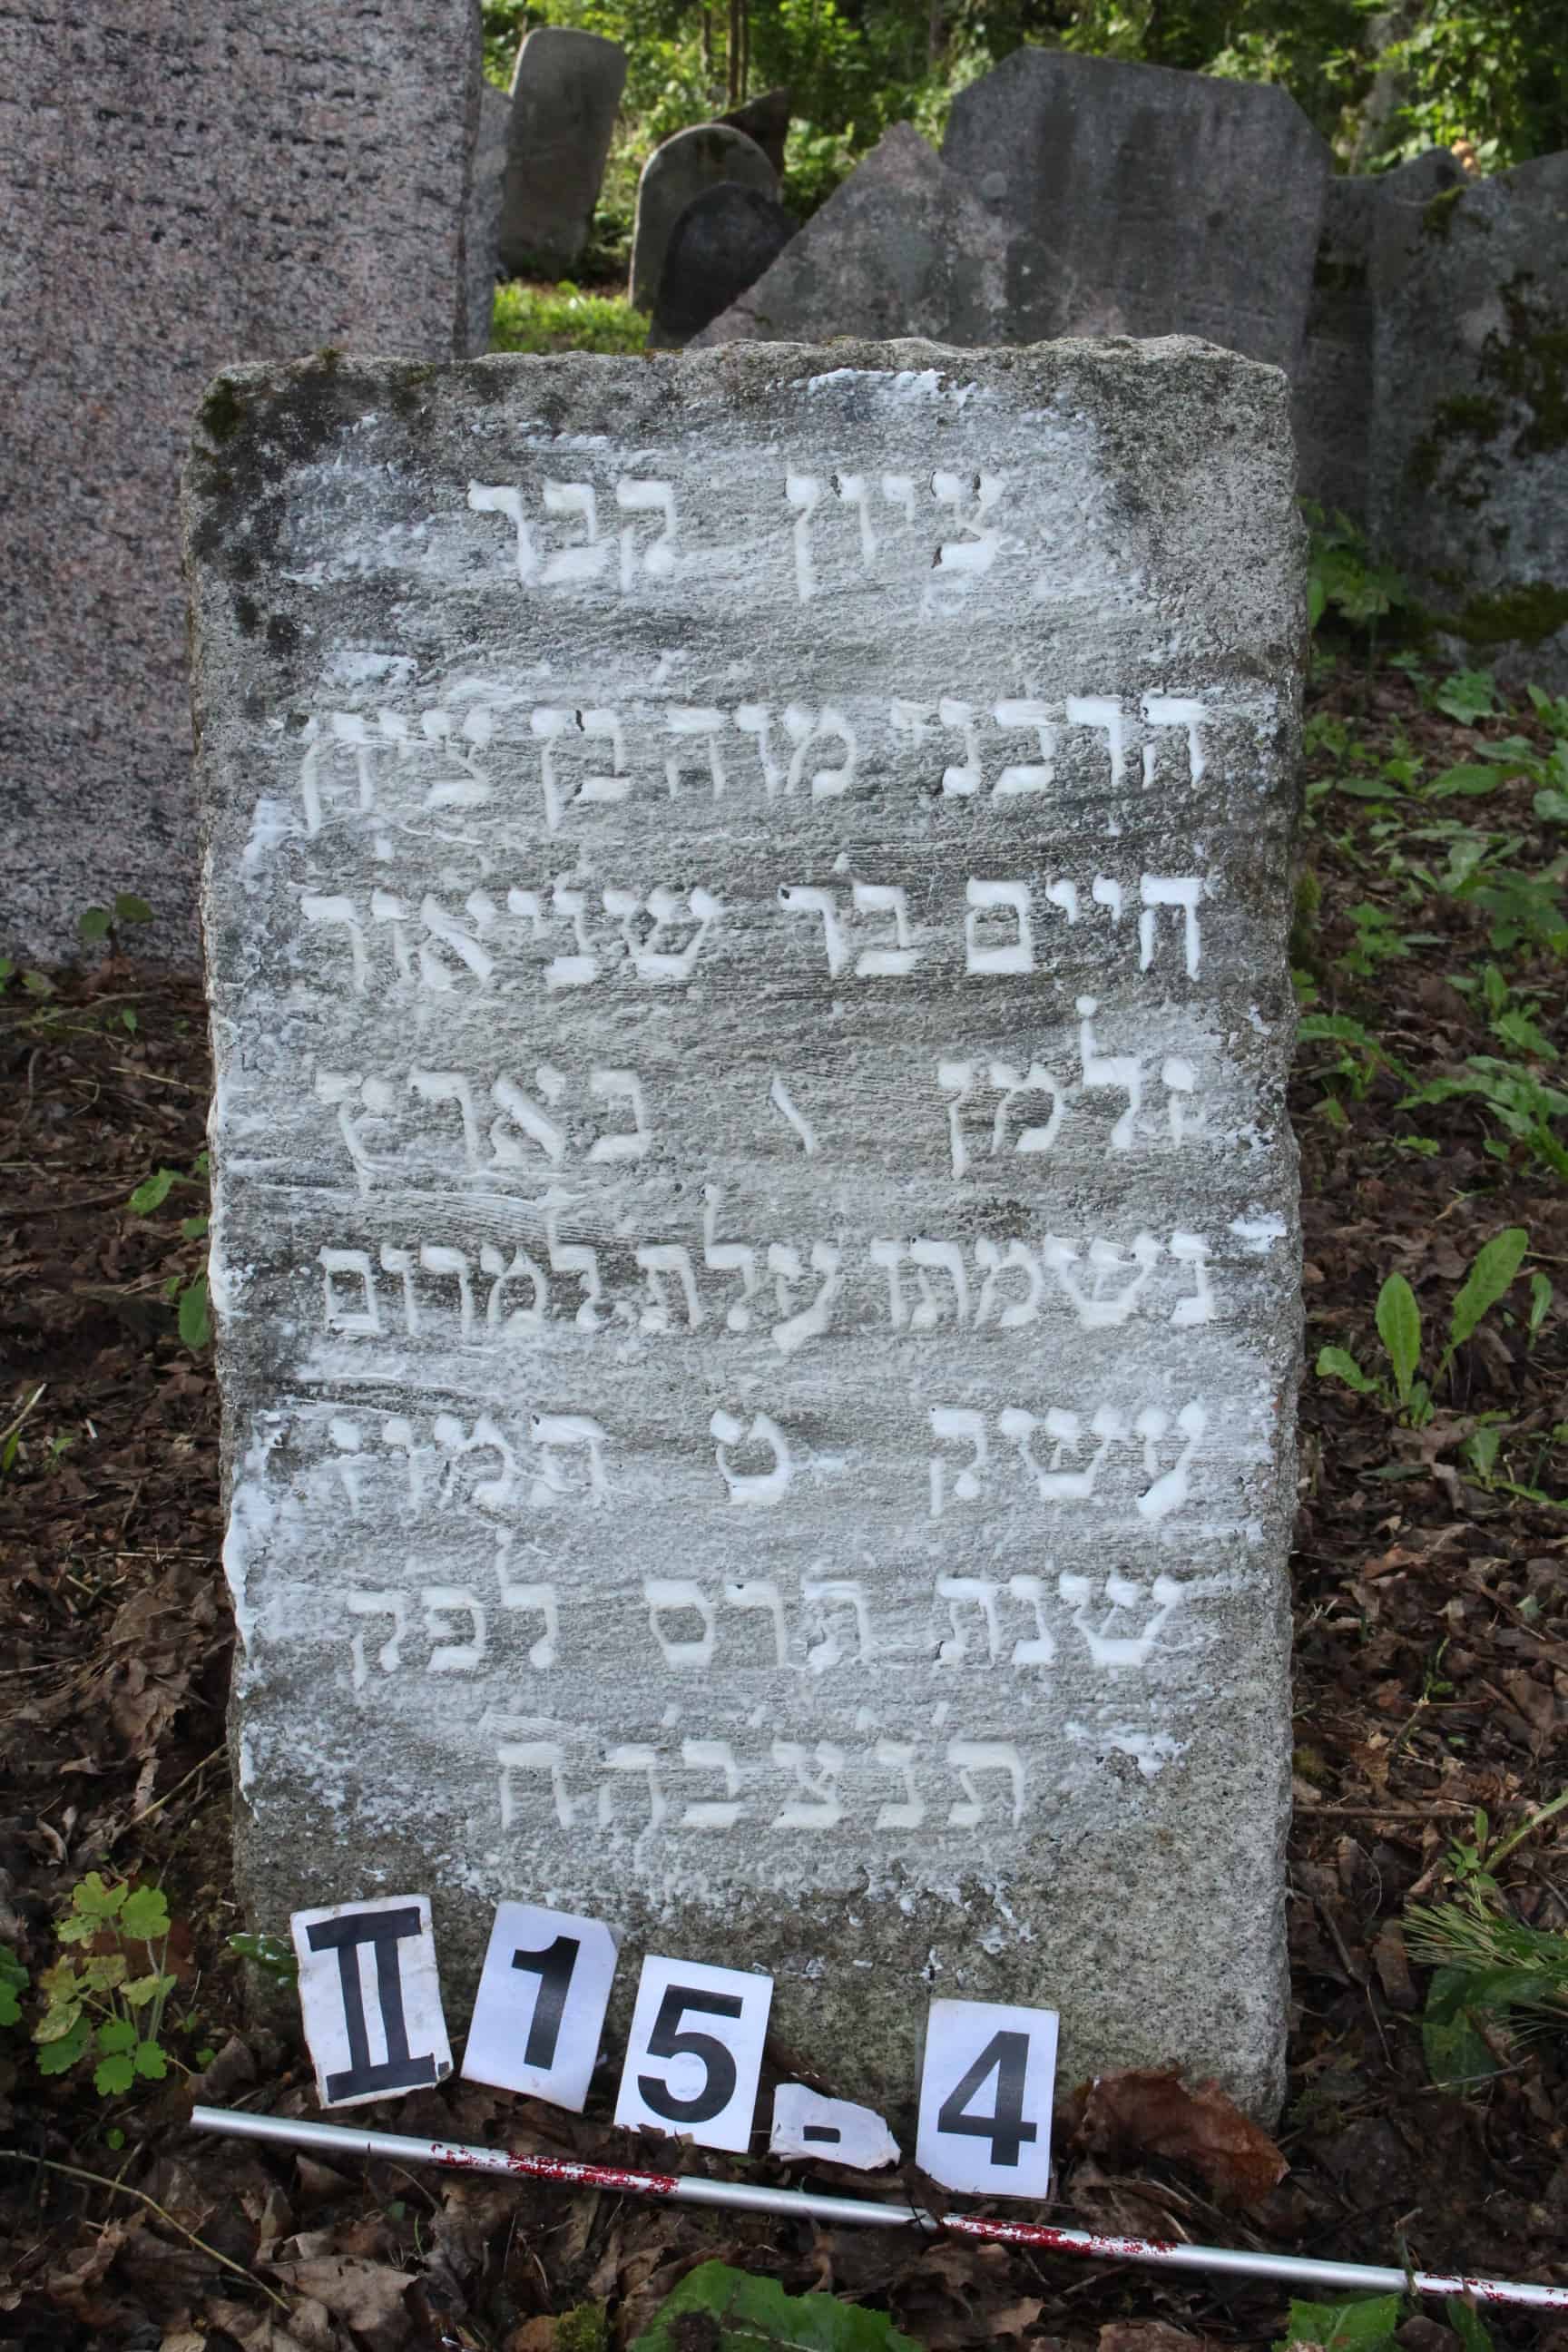 ציון קבר
הרבני מוה בן ציון
חיים בר שניאור
זלמן ו כ׳׳ץ
נשמתו עלת למרום
עשק ט תמוז
שנת תרס לפק
תנצבהה
II 15-4